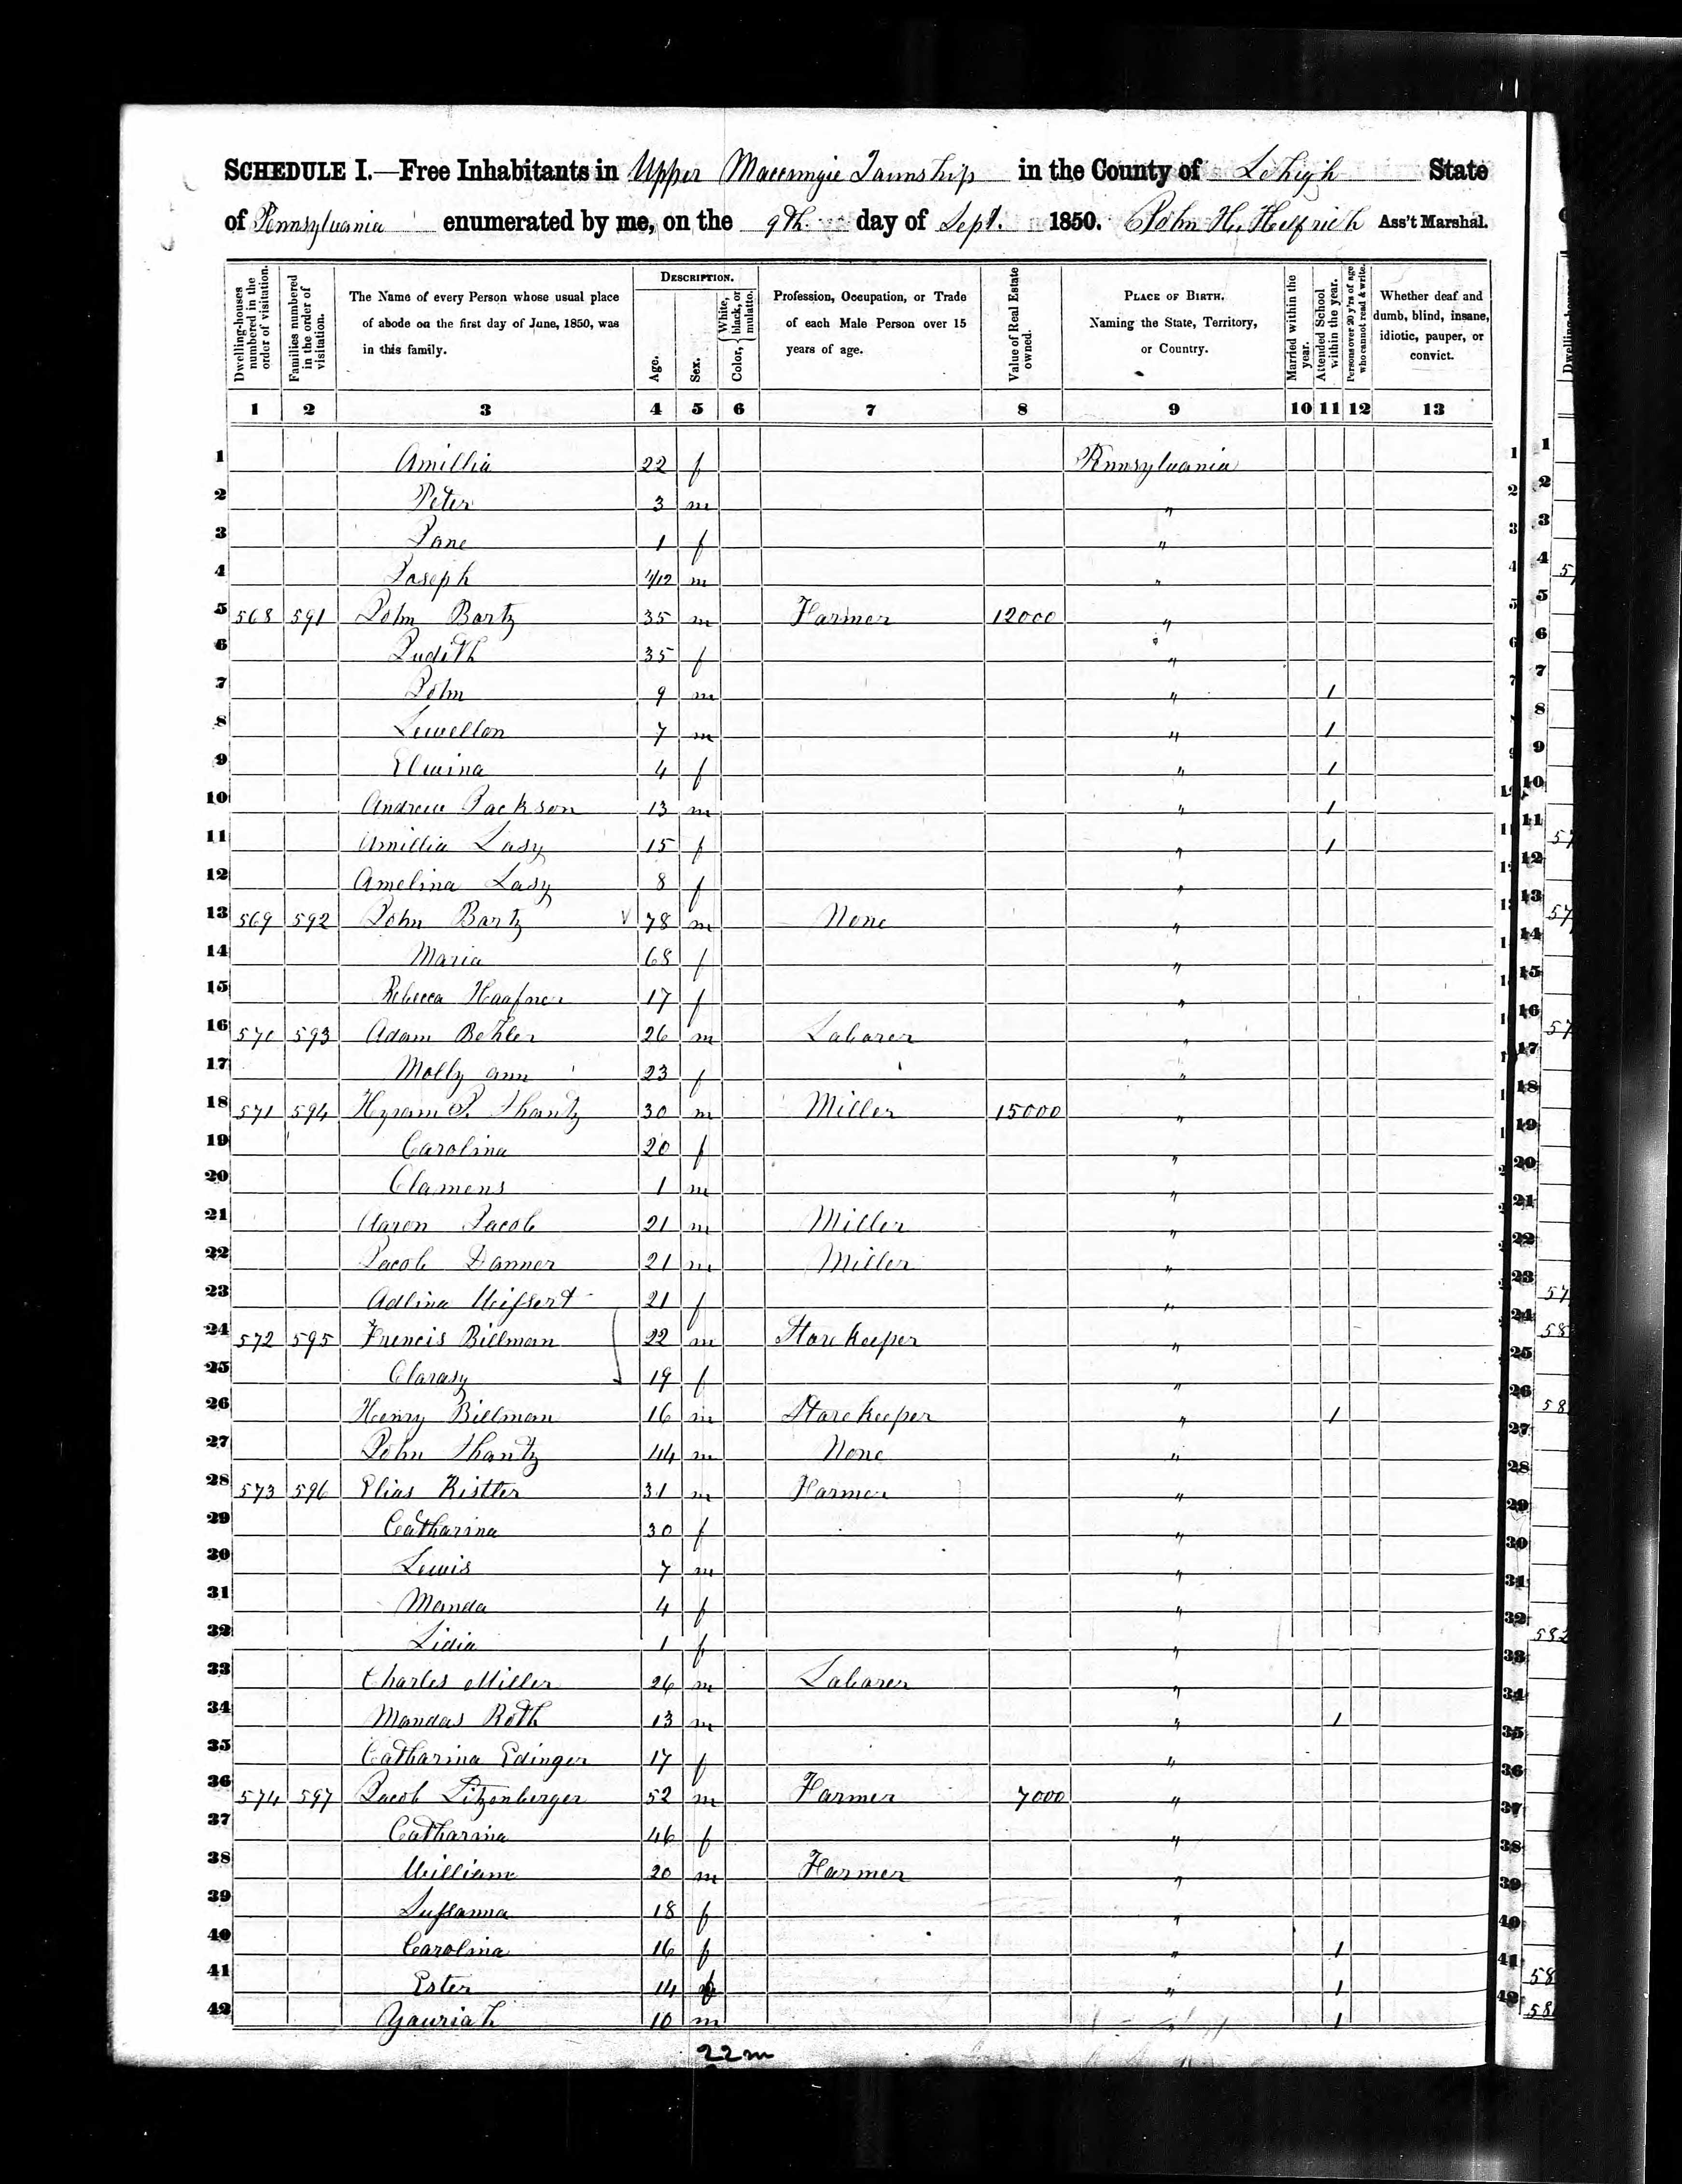 SCHEDULE I.—Free Inhabitants in Upper Macungie Township in the County of Lehigh State
of Pennsylvania enumerated by me, on the 9th day of Sept. 1850. John H. Helfrich Ass't Marshal.
Dwelling-houses numbered in the order of visitation.
Families numbered in the order of visitation.
The Name of every Person whose usual place of abode on the first day of June, 1850, was in this family.
DESCRIPTION.
Age.
Sex.
Color, White, black, or mulatto.
Profession, Occupation, or Trade of each Male Person over 15 years of age.
Value of Real Estate owned.
PLACE OF BIRTH. Naming the State, Territory, or Country.
Married within the year.
Attended School within the year.
Persons over 20 y'rs of age who cannot read & write.
Whether deaf and dumb, blind, insane, idiotic, pauper, or convict.
1 2 3 4 5 6 7 8 9 10 11 12 13
1 Amillia 22 f Pennsylvania 1
2 Peter 3 m " 2
3 Jane 1 f " 3
4 Joseph 1/12 m " 4
5 568 591 John Bartz 35 m Farmer 12000 " 5
6 Judith 35 f " 6
7 John 9 m " 1 7
8 Lewellon 7 m " 1
9 Elwina 4 f " 1
10 Andrew Jackson 13 m " 1
11 Amillia Lasy 15 f " 1
12 Amelina Lasy 8 f "
13 569 592 John Bartz √ 78 m None "
14 Maria 68 f "
15 Rebecca Haafner 17 f "
16 570 593 Adam Bekler 26 m Laborer "
17 Molly ann 23 f "
18 571 594 Hyram J. Shantz 30 m Miller 15000 "
19 Carolina 20 f "
20 Clamens 1 m "
21 Aaron Jacob 21 m Miller "
22 Jacob Danner 21 m Miller "
23 Adlina Weissert 21 f "
24 572 595 Francis Billman 22 m Store keeper "
25 Clarasy 19 f "
26 Henry Billman 16 m Store keeper " 1
27 John Shantz 44 m None "
28 573 596 Elias Kistler 31 m Farmer "
29 Catharina 30 f "
30 Lewis 7 m "
31 Manda 4 f "
32 Lidia 1 f "
33 Charles Miller 26 m Laborer "
34 Mandas Roth 13 m " 1
35 Catharina Edinger 17 f "
36 574 597 Jacob Litzenberger 52 m Farmer 7000 "
37 Catharina 46 f "
38 William 20 m Farmer "
39 Sussanna 18 f "
40 Carolina 16 f " 1
41 Ester 14 f " 1
42 10 m " 1
22 m